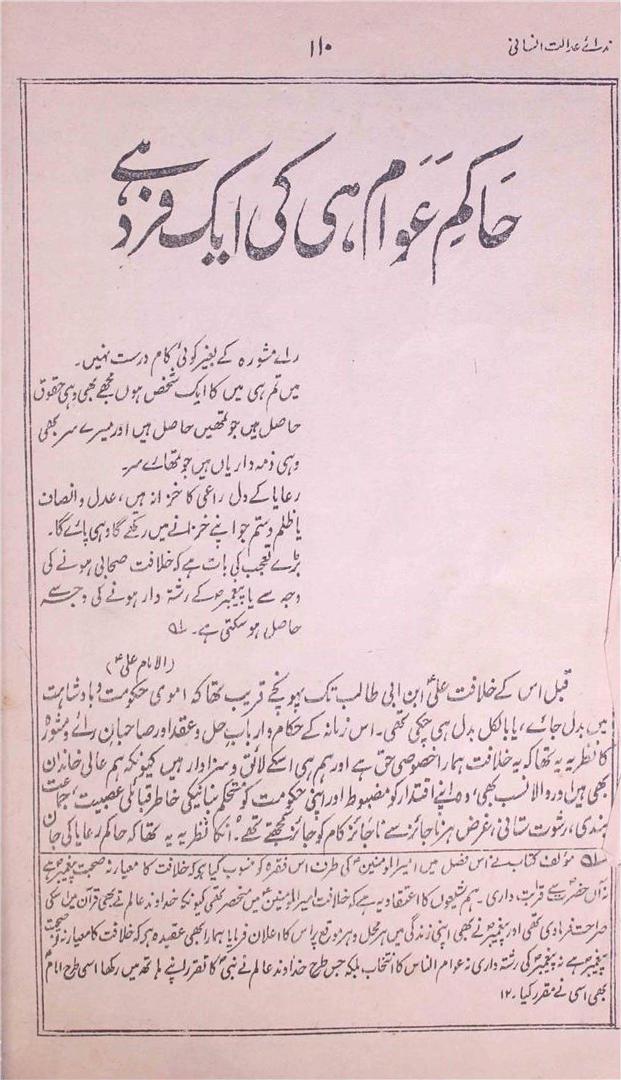 ندائے عدالت انسانی
۱۱۰
حَاکمِ عَوَام ھی کی ایک فرد ہے
رائے مشورہ کے بغیر کوئی کام درست نہیں۔
میں تم ہی میں کا ایک شخص ہوں مجھے بھی وہی حقوق
حاصل ہیں جو تمھیں حاصل ہیں اور میرے سر بھی
وہی ذمہ داریاں ہیں جو تمھارے سر۔
رعایا کے دل راعی کا خزانہ ہیں، عدل و انصاف
یا ظلم و ستم جو اپنے خزانے میں رکھے گا وہی پائے گا۔
بڑے تعجب کی بات ہے کہ خلافت صحابی ہونے کی
وجہ سے یا پیغمبرؐ کے رشتہ دار ہونے کی وجہ سے
حاصل ہو سکتی ہے۔ ؎۱
(الامام علیؑ)
قبل اس کے خلافت علیؑ ابن ابی طالب تک پہونچے قریب تھا کہ اموی حکومت و بادشاہت
میں بدل جائے، یا بالکل بدل ہی چکی تھی۔ اس زمانہ کے حکام و ارباب حل و عقد اور صاحبان رائے و مشورہ
کا نظریہ یہ تھا کہ یہ خلافت ہمارا خصوصی حق ہے اور ہم ہی اسکے لائق و سزاوار ہیں کیونکہ ہم عالی خاندان
بھی ہیں اور والا نسب بھی، وہ اپنے اقتدار کو مضبوط اور اپنی حکومت کو مستحکم بنانیکی خاطر قبائلی عصبیت، جماعت
بندی، رشوت ستانی، غرض ہر ناجائز سے ناجائز کام کو جائز سمجھتے تھے۔ انکا نظریہ یہ تھا کہ حاکم، رعایا کی جان
؎۱ مؤلف کتاب نے اس فصل میں امیر المومنینؑ کی طرف اس فقرہ کو منسوب کیا ہو کہ خلافت کا معیار نہ صحبت پیغمبرؐ ہے
نہ آں حضرتؐ سے قرابت داری۔ ہم شیعوں کا اعتقاد یہ ہے کہ خلافت امیر المومنینؑ میں منحصر تھی کیونکہ خداوند عالم نے بھی قرآن میں اسکی
صراحت فرمادی تھی اور پیغمبرؐ نے بھی اپنی زندگی میں ہر محل و ہر موقع پر اس کا اعلان فرمایا ہمارا بھی عقیدہ ہو کہ خلافت کا معیار نہ صحبت
پیغمبرؐ ہے نہ پیغمبرؐ کی رشتہ داری نہ عوام الناس کا انتخاب بلکہ جس طرح خداوند عالم نے نبیؐ کا تقرر اپنے ہاتھ میں رکھا اسی طرح امامؑ
بھی اسی نے مقرر کیا۔ ۱۲